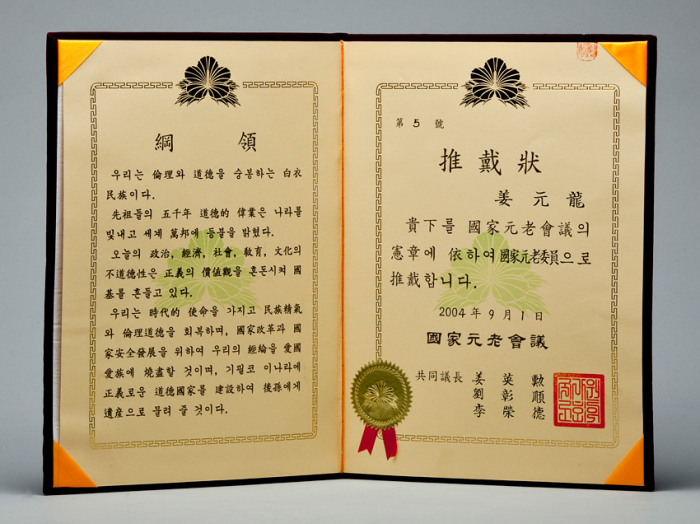 綱 領
우리는 倫理와 道德을 숭봉하는 白衣
民族이다.
先祖들의 五千年 道德的 偉業은 나라를
빛내고 세계 萬邦에 등불을 밝혔다.
오늘의 政治, 經濟, 社會, 敎育, 文化의
不道德性은 正義의 價值觀을 혼돈시켜 國
基를 흔들고 있다.
우리는 時代的 使命을 가지고 民族精氣
와 倫理道德을 회복하며, 國家改革과 國
家安全發展을 위하여 우리의 經綸을 愛國
愛族에 燒盡할 것이며, 기필코 이나라에
正義로운 道德國家를 建設하여 後孫에게
遺産으로 물려 줄 것이다.
第 5 號
推戴狀
姜元龍
貴下를 國家元老會議의
憲章에 依하여 國家元老委員으로
推戴합니다.
2004 年 9 月 1 日
國家元老會議
共同議長 姜英勳
劉彰順
李榮德